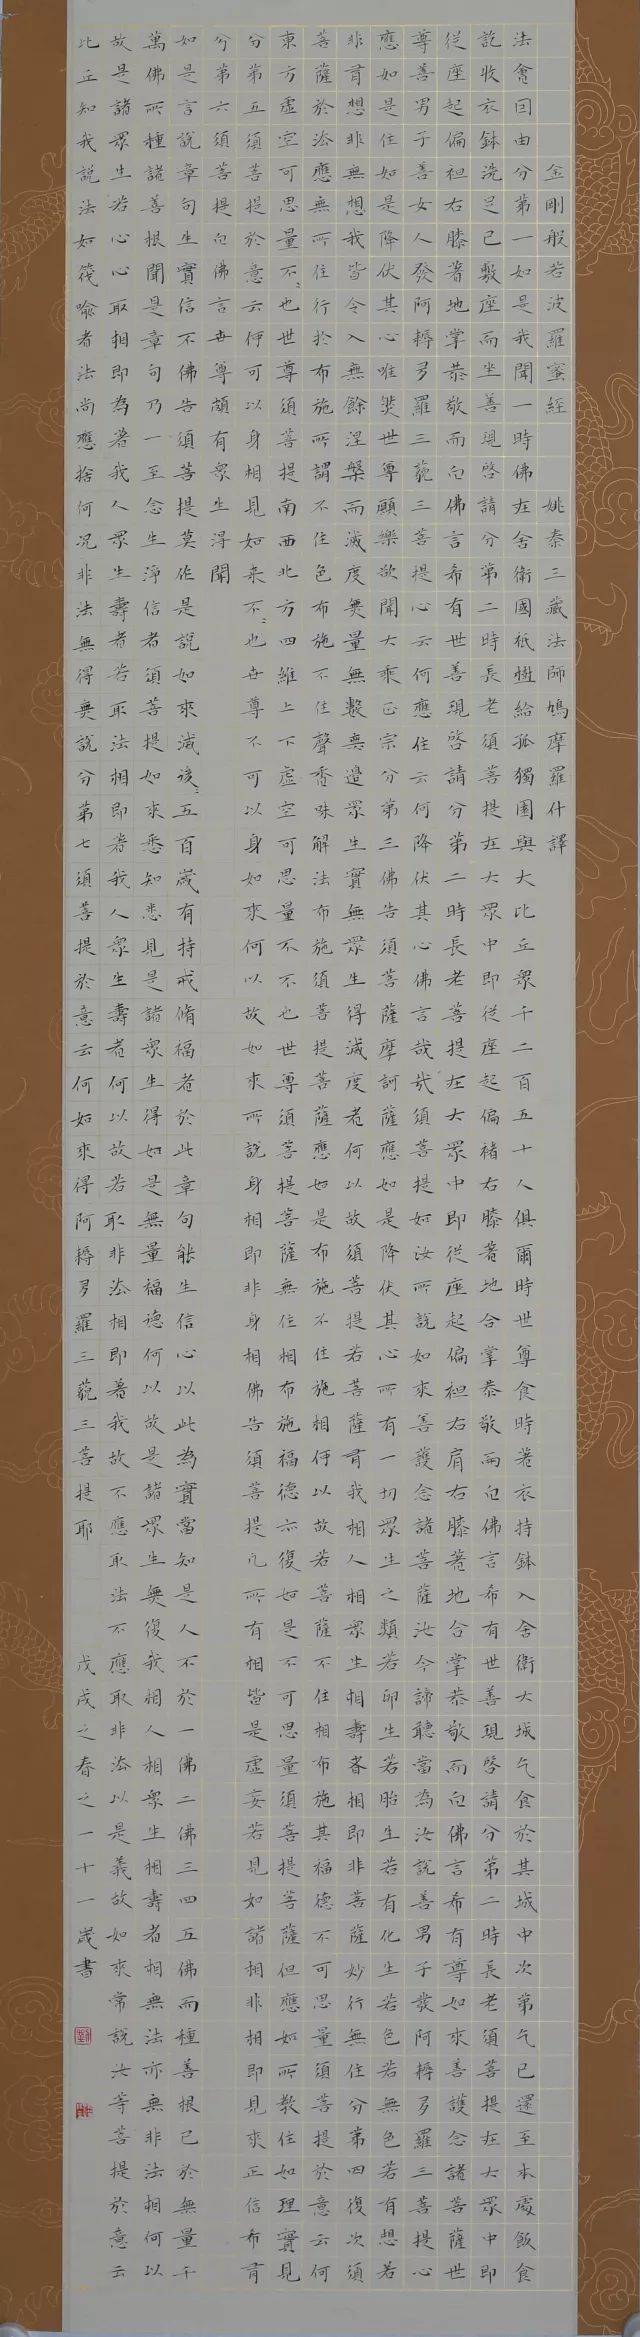 金剛般若波羅蜜經 姚秦三藏法師鳩摩羅什譯
法會因由分第一如是我聞一時佛在舍衛國祇樹給孤獨園與大比丘眾千二百五十人俱爾時世尊食時著衣持鉢入舍衛大城乞食於其城中次第乞已還至本處飯食
訖收衣鉢洗足已敷座而坐善現啓請分第二時長老須菩提在大眾中即從座起偏褚右膝著地合掌恭敬而白佛言希有世善現啓請分第二時長老須菩提在大眾中即
從座起偏袒右膝著地掌恭敬而白佛言希有世善現啓請分第二時長老菩提在大眾中即從座起偏袒右肩右膝著地合掌恭敬而白佛言希有尊如來善護念諸菩薩世
尊善男子善女人發阿耨多羅三藐三菩提心云何應住云何降伏其心佛言哉哉須菩提如汝所說如來善護念諸菩薩汝今諦聽當為汝說善男子發阿耨多羅三菩提心
應如是住如是降伏其心唯然世尊願樂欲聞大乘正宗分第三佛告須菩薩摩訶薩應如是降伏其心所有一切眾生之類若卵生若胎生若有化生若色若無色若有想若
非有想非無想我皆令入無餘涅槃而滅度無量無數無邊眾生實無眾生得滅度者何以故須菩提若菩薩有我相人相眾生相壽者相即非菩薩妙行無住分第四復次須
菩薩於法應無所住行於布施所謂不住色布施不住聲香味解法布施須菩提菩薩應如是布施不住施相何以故若菩薩不住相布施其福德不可思量須菩提於意云何
東方虛空可思量不也世尊須菩提南西北方四維上下虛空可思量不不也世尊須菩提菩薩無住相布施福德亦復如是不可思量須菩提菩薩但應如所教住如理實見
分第五須菩提於意云何可以身相見如來不也世尊不可以身如來何以故如來所說身相即非身相佛告須菩提凡所有相皆是虛妄若見如諸相非相即見來正信布有
分第六須菩提白佛言世尊頗有眾生得聞
如是言說章句生實信不佛告須菩提莫作是說如來滅後五百歲有持戒脩福者於此章句能生信心以此為實當知是人不於一佛二佛三四五佛而種善根已於無量千
萬佛所種諸善根聞是章句乃一至念生淨信者須菩提如來悉知悉見是諸眾生得如是無量福德何以故是諸眾生無復我相人相眾生相壽者相無法亦無非法相何以
故是諸眾生若心心取相即為著我人眾生壽者若取法相即著我人眾生壽者何以故若取非法相即著我故不應取法不應取非法以是義故如來常說汝等菩提於意云
比丘知我說法如筏喻者法尚應捨何況非法無得無說分第七須菩提於意云何如來得阿耨多羅三藐三菩提耶 戊戌之春之一十一歲書